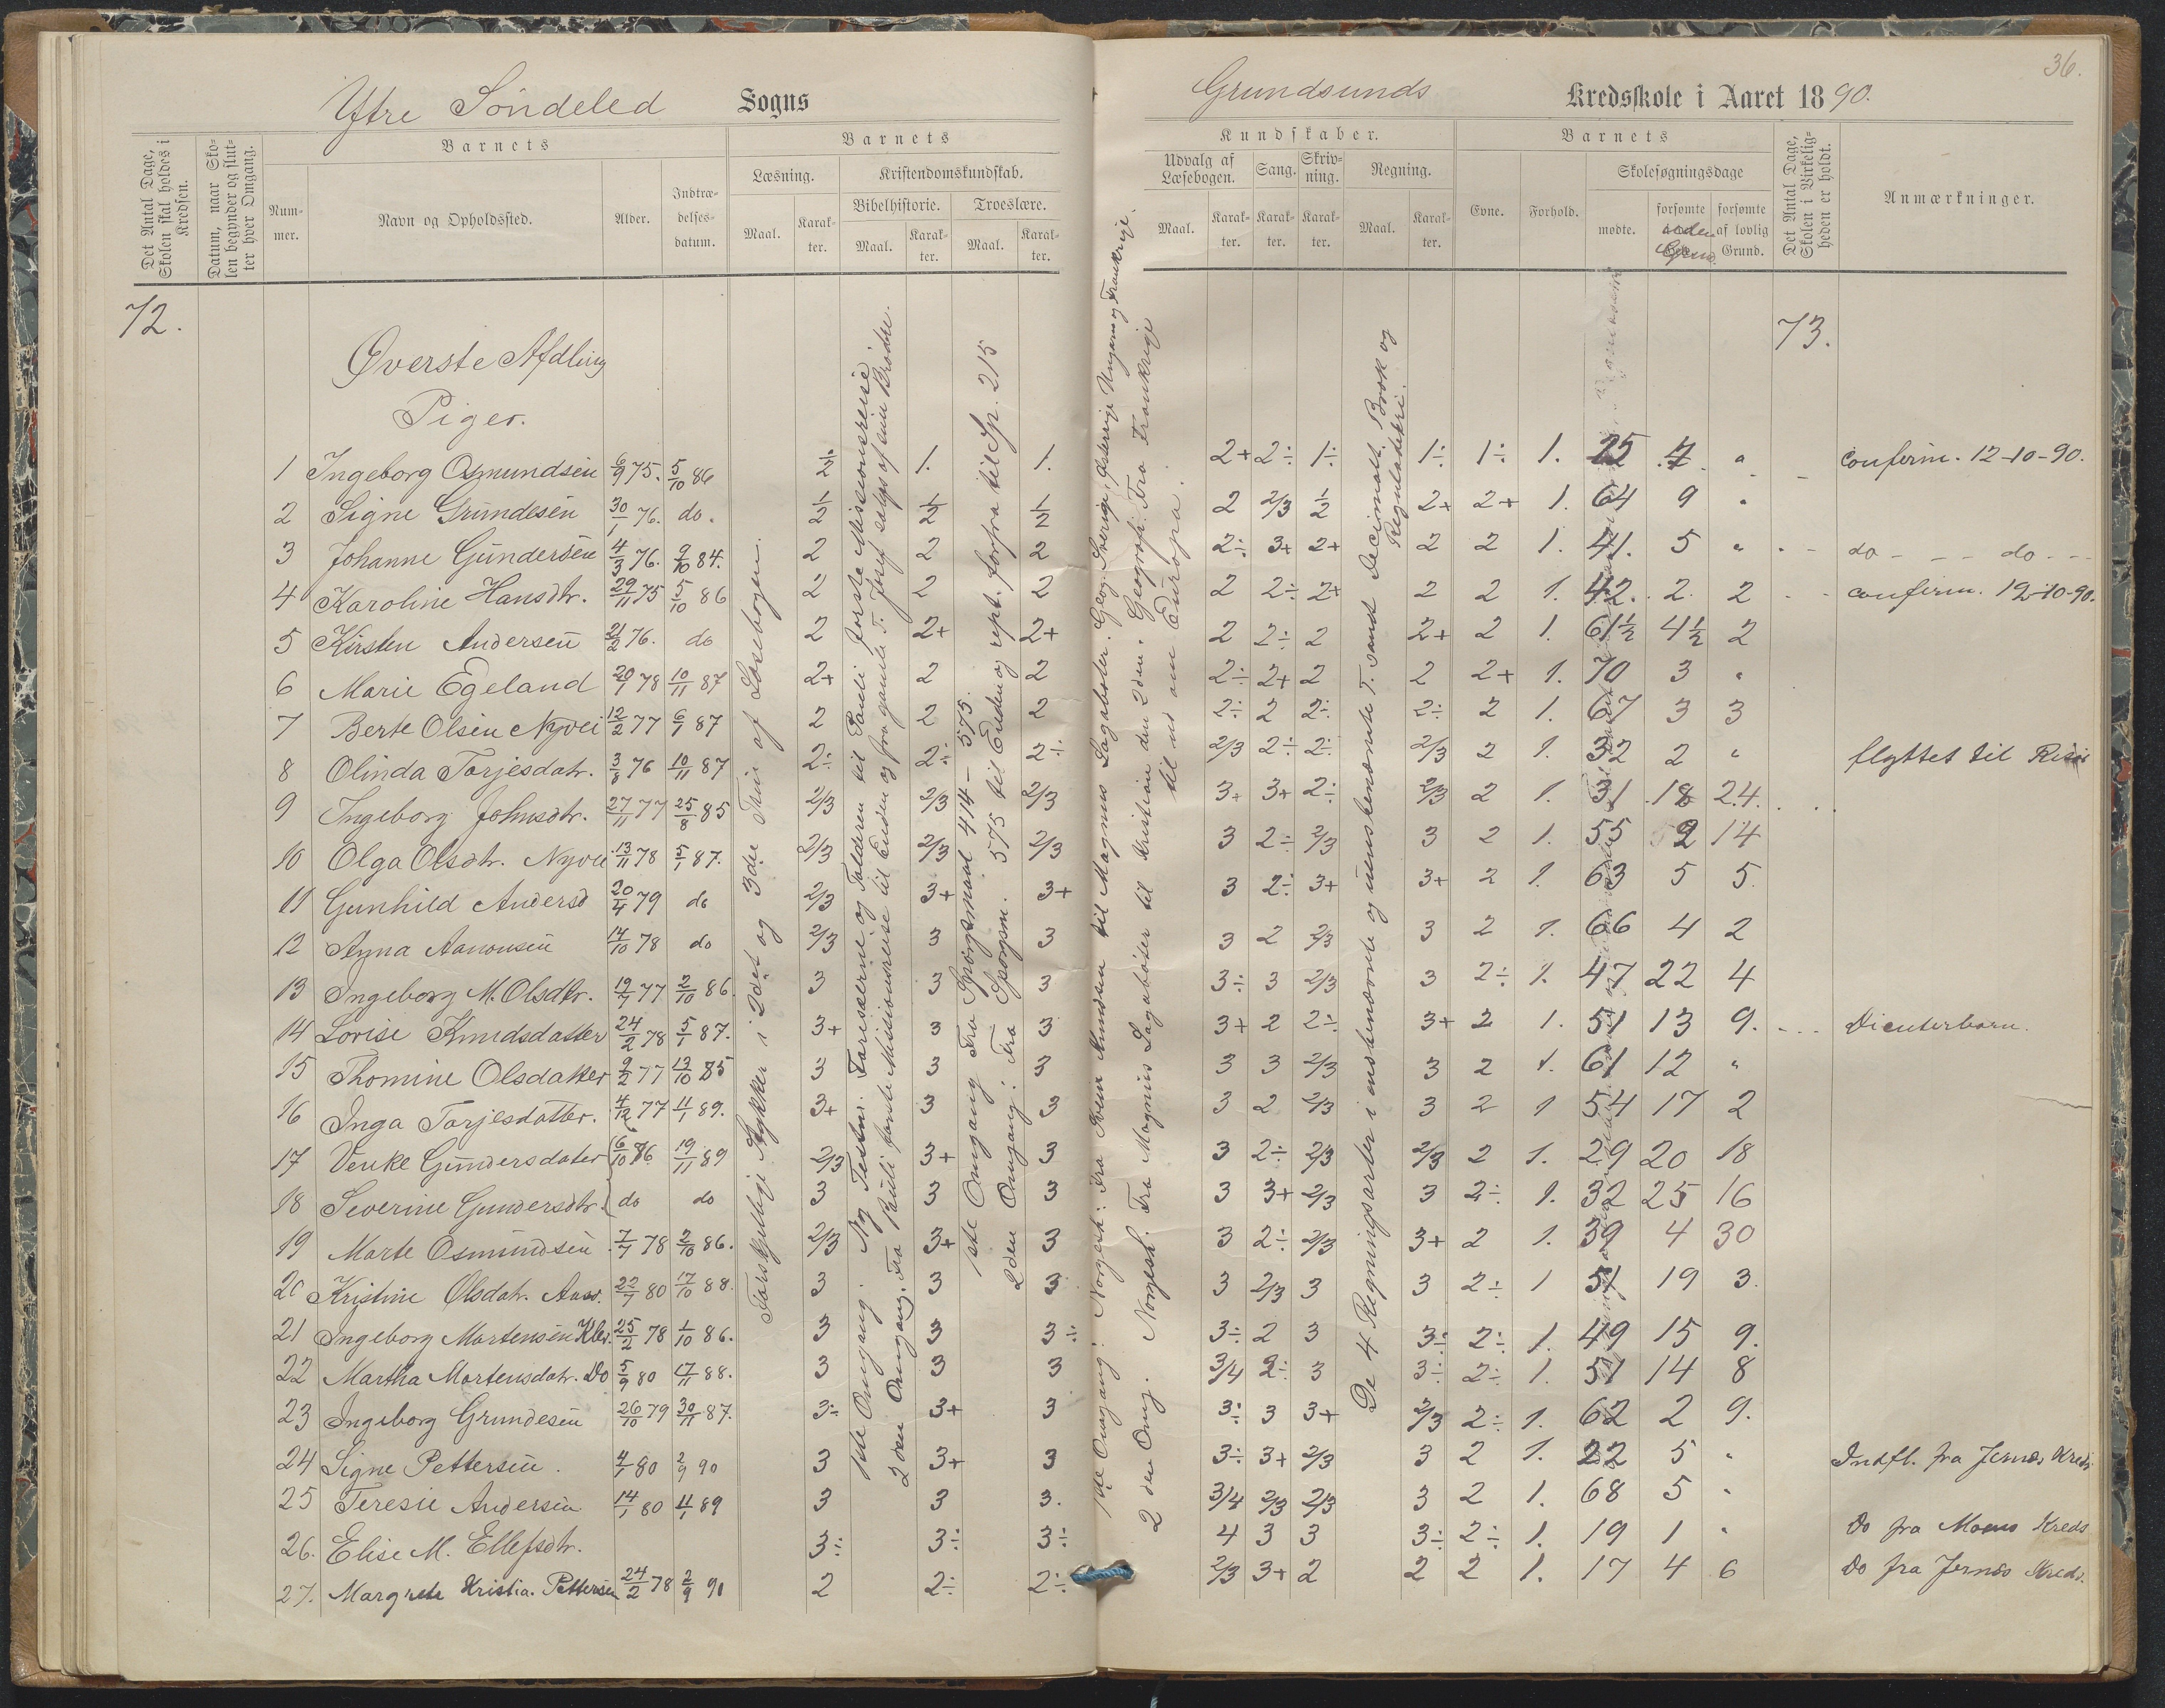 36.
Ytre Söndeled Sogns
Grundsunds Kredsskole i Aaret 1890.
Det Antal Dage, Skolen skal holdes i Kredsen.
Datum, naar Skolen begynder og slutter hver Omgang.
Barnets
Nummer.
Navn og Opholdssted.
Alder.
Indtrædelsesdatum.
Barnets
Læsning.
Maal.
Karakter.
Kristendomskundskab.
Bibelhistorie.
Maal.
Karakter.
Troeslære.
Maal.
Karakter.
Kundskaber.
Udvalg af Læsebogen.
Maal.
Karakter.
Sang.
Karakter.
Skrivning.
Karakter.
Regning.
Maal.
Karakter.
Barnets
Evne.
Forhold.
Skolesøgningsdage
mødte.
forsømte uden Grund.
forsømte af lovlig Grund.
Det Antal Dage, Skolen i Virkeligheden er holdt.
Anmærkninger.
72.
73.
Øverste Afdling
Piger.
1 Ingeborg Osmundsen 6/9 75. 5/10 86 1/2 1. 1. 2+ 2÷ 1÷ 1÷ 1÷ 1. 25 7 " confirm. 12-10-90.
2 Signe Grundesen 30/1 76. do. 1/2 1/2 1/2 2 2/3 1/2 2+ 2+ 1. 64 9 "
3 Johanne Gundersen 4/3 76. 9/10 84. 2 2 2 2÷ 3+ 2+ 2 2 1. 41. 5 " do - - - do - -
4 Karoline Hansdtr. 29/11 75 5/10 86 2 2 2 2 2÷ 2+ 2 2 1. 42. 2. 2 confirm. 12-10-90.
5 Kirsten Andersen 21/2 76. do 2 2+ 2+ 2 2÷ 2 2+ 2 1. 61½ 4½ 2
6 Marie Egeland 20/1 78 10/11 87 2+ 2 2 2÷ 2+ 2 2 2+ 1. 70 3 "
7 Berte Olsen Nyvei 12/2 77 6/1 87 2 2 2 2÷ 2 2÷ 2÷ 2 1. 67 3 3
8 Olinda Torjesdatr. 3/8 76 10/11 87 2÷ 2÷ 2÷ 2/3 2÷ 2÷ 2/3 2 1. 32 2 " flyttet til Risør
9 Ingeborg Johnsdtr. 27/11 77 25/8 85 2/3 2/3 2/3 3+ 3+ 2÷ 2/3 2 1. 31 18 24.
10 Olga Olsdtr. Nyvei 13/11 78 5/1 87. 2/3 2/3 2/3 3 2÷ 2/3 3 2 1. 55 2 14
11 Gunhild Andersd 20/4 79 do 2/3 3+ 3+ 3 2÷ 3+ 3+ 2 1. 63 5 5.
12 Anna Aanonsen 14/10 78 do 2/3 3 3 3 2 2/3 3 2 1. 66 4 2
13 Ingeborg M. Olsdtr. 19/7 77 2/10 86. 3 3 3 3÷ 3 2/3 3 2÷ 1. 47 22 4
14 Lovise Knudsdatter 24/2 78 5/1 87. 3+ 3 3 3+ 2 2÷ 3+ 2 1. 51 13 9.
15 Thomine Olsdatter 9/2 77 13/10 85 3 3 3 3 3 2/3 3 2 1. 61 12 "
16 Inga Torjesdatter. 4/12 77 11/1 89. 3+ 3 3 3 2 2/3 3 2 1 54 17 2
17 Venke Gundersdater 6/10 76 19/11 89 2/3 3+ 3 3 2÷ 2/3 2/3 2 1. 29 20 18
18 Severine Gundersdtr. do do 3 3 3 3 3+ 2/3 3 2÷ 1. 32 25 16
19 Marte Osmundsen 7/7 78 2/10 86. 2/3 3+ 3 3 2÷ 2/3 3+ 2 1. 39 4 30
20 Kristine Olsdatr. 22/7 80 17/10 88. 3 3 3 3 2/3 3 3 2÷ 1 51 19 3.
21 Ingeborg Martensen Klev. 25/2 78 1/10 86. 3 3 3÷ 3÷ 2 3 3÷ 2÷ 1. 49 15 9.
22 Martha Mortensdatr. Do 5/9 80 17/11 88. 3 3 3 3/4 2÷ 3 3÷ 2÷ 1. 51 14 8
23 Ingeborg Grundesen 26/10 79 30/11 87. 3÷ 3+ 3 3÷ 3 3+ 2/3 2÷ 1. 62 2 9.
24 Signe Pettersen. 4/1 80 2/9 90 3 3+ 3 3÷ 3+ 2/3 3 2 1. 22 5 " Indfl. fra Jernæs Kreds.
25 Teresie Andersen 14/1 80 11/1 89 3 3 3. 3/4 2/3 2/3 3 2 1. 68 5 "
26. Elise M. Ellefsdtr. 3÷ 3÷ 3÷ 4 3 3 3÷ 2÷ 1. 19 1 " Do fra Moens Kreds
27. Margrete Kristia. Pettersen 24/2 78 2/9 90 2 2÷ 2÷ 2/3 3+ 2 2 2 1. 17 4 6 Do fra Jernæs Kreds.
Forskjellige Stykker i 2det og 3die Trin af Læsebogen.
1ste Omgang. Ny Testm. Farisæerne og Tolderen til Pauli første Missionsreise.
2den Omgang. Fra Pauli første Missionsreise til Enden og fra gamle T. Josef sælges af sine Brødre.
1ste Omgang Fra Spørgsmaal 414 - 575.
2den Omgang: Fra Spørgsm. 575 til Enden og rept. forfra til Sp. 215
1ste Omgang: Norgesh: Fra Svein Knudsen til Magnus Lagabøter. Geog. Sverige, Østerige Ungarn og Frankerige.
2den Omg. Norgesh. Fra Magnus Lagabøter til Kristian den 2den. Geografi: Fra Frankrige til ud om Europa.
De 4 Regningsarter i ensbenævnte og uensbenævnte T. samt Decimalt. Brøk og Reguladetri.